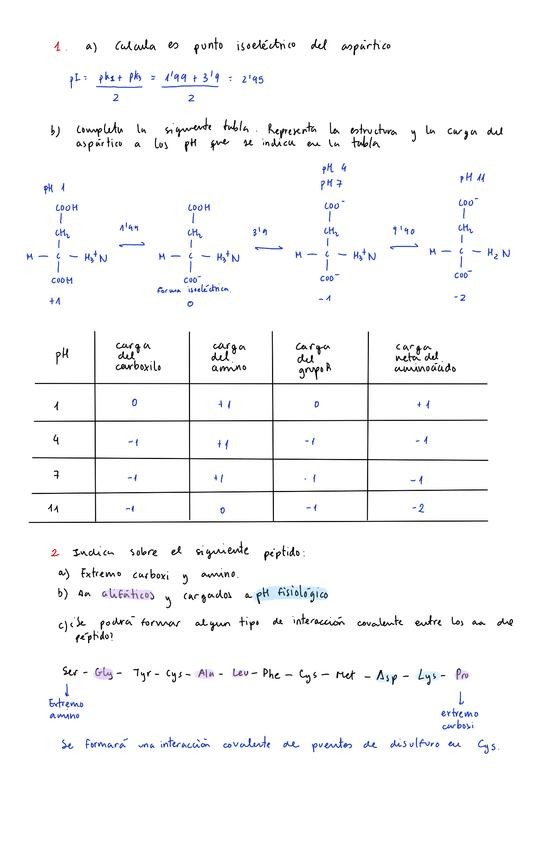 1. a) Calcula es punto isoeléctrico del aspártico
pI = pk1 + pk3 / 2 = 1'99 + 3'9 / 2 = 2'95
b) Completa la siguiente tabla. Representa la estructura y la carga del
aspártico a los pH que se indica en la tabla
pH 4
pH 1 pH 7 pH 11
COOH COOH COO⁻ COO⁻
CH₂ 1'99 CH₂ 3'9 CH₂ 9'90 CH₂
H — C — H₃⁺N H — C — H₃⁺N H — C — H₃⁺N H — C — H₂N
COOH COO⁻ COO⁻ COO⁻
Forma isoeléctrica
+1 0 -1 -2
pH carga del carboxilo carga del amino carga del grupo R carga neta del aminoácido
1 0 +1 0 +1
4 -1 +1 -1 -1
7 -1 +1 -1 -1
11 -1 0 -1 -2
2 Indica sobre el siguiente péptido:
a) Extremo carboxi y amino.
b) Aa alifáticos y cargados a pH fisiológico
c) ¿Se podrá formar algun tipo de interacción covalente entre los aa del
péptido?
Ser - Gly - Tyr - Cys - Ala - Leu - Phe - Cys - Met - Asp - Lys - Pro
Extremo amino
extremo carboxi
Se formará una interacción covalente de puentes de disulfuro en Cys.